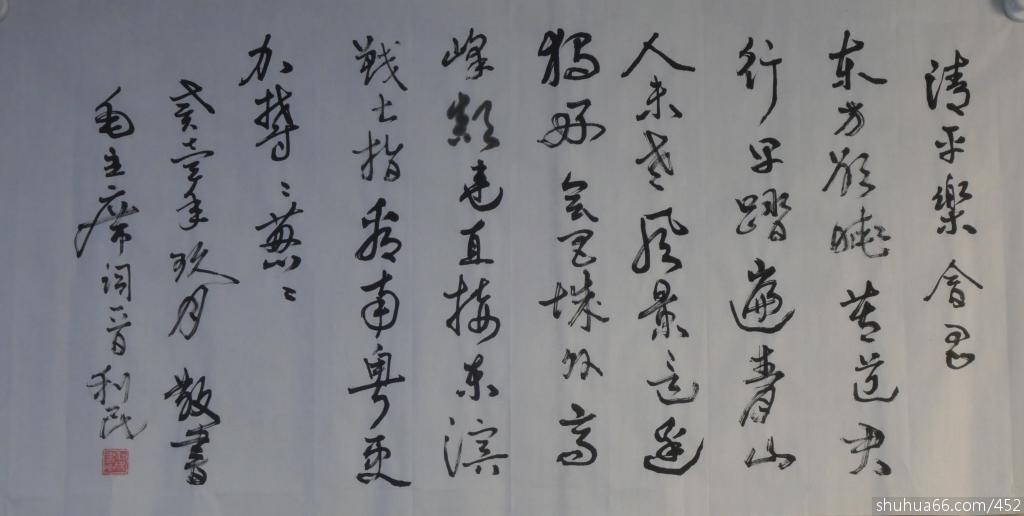 清平樂 會昌
东方欲曉莫道君
行早踏遍青山
人未老风景這邊
獨好會昌城外高
峰颠連直接东溟
战士指看南粤更
加鬱〻葱〻
年玖月 敬書
毛主席词一首 利民
shuhua66.com/452